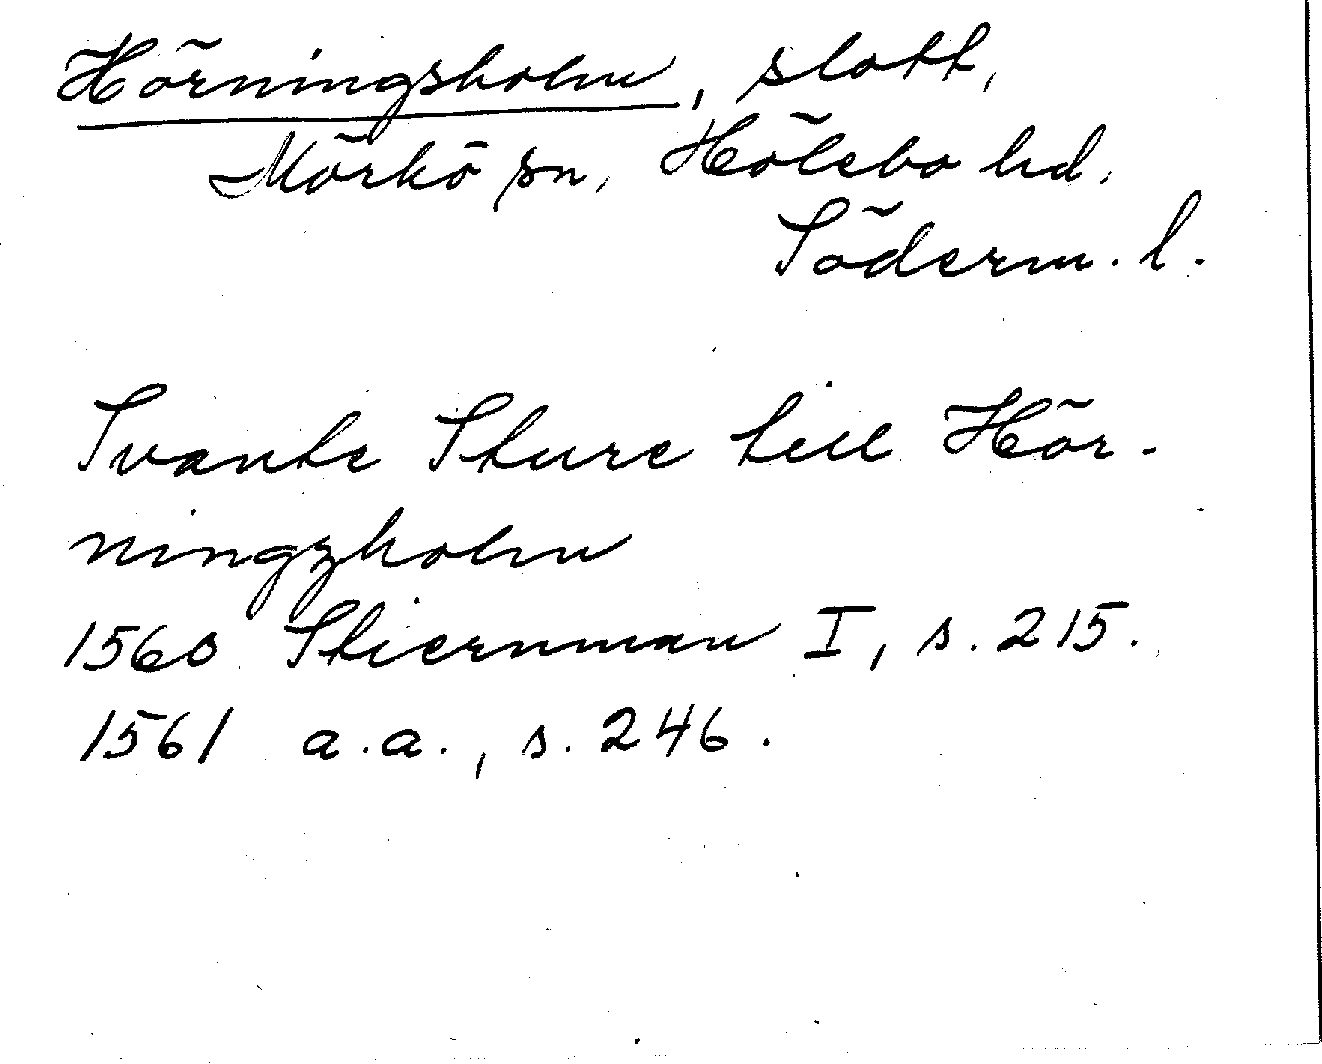 Hörningsholm, slott,
Mörkö sn, Hölebo hd,
Söderm. l.
Svante Sture till Hör-
ningzholm
1560 Stiernman I, s. 215.
1561 a.a., s. 246.